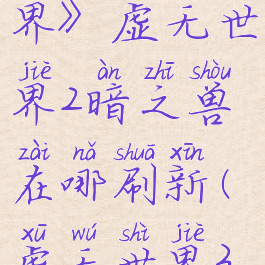 界》虚无世
jiè àn zhī shòu
界2暗之兽
zài nǎ shuā xīn
在哪刷新(
xū wú shì jiè
虚无世界2